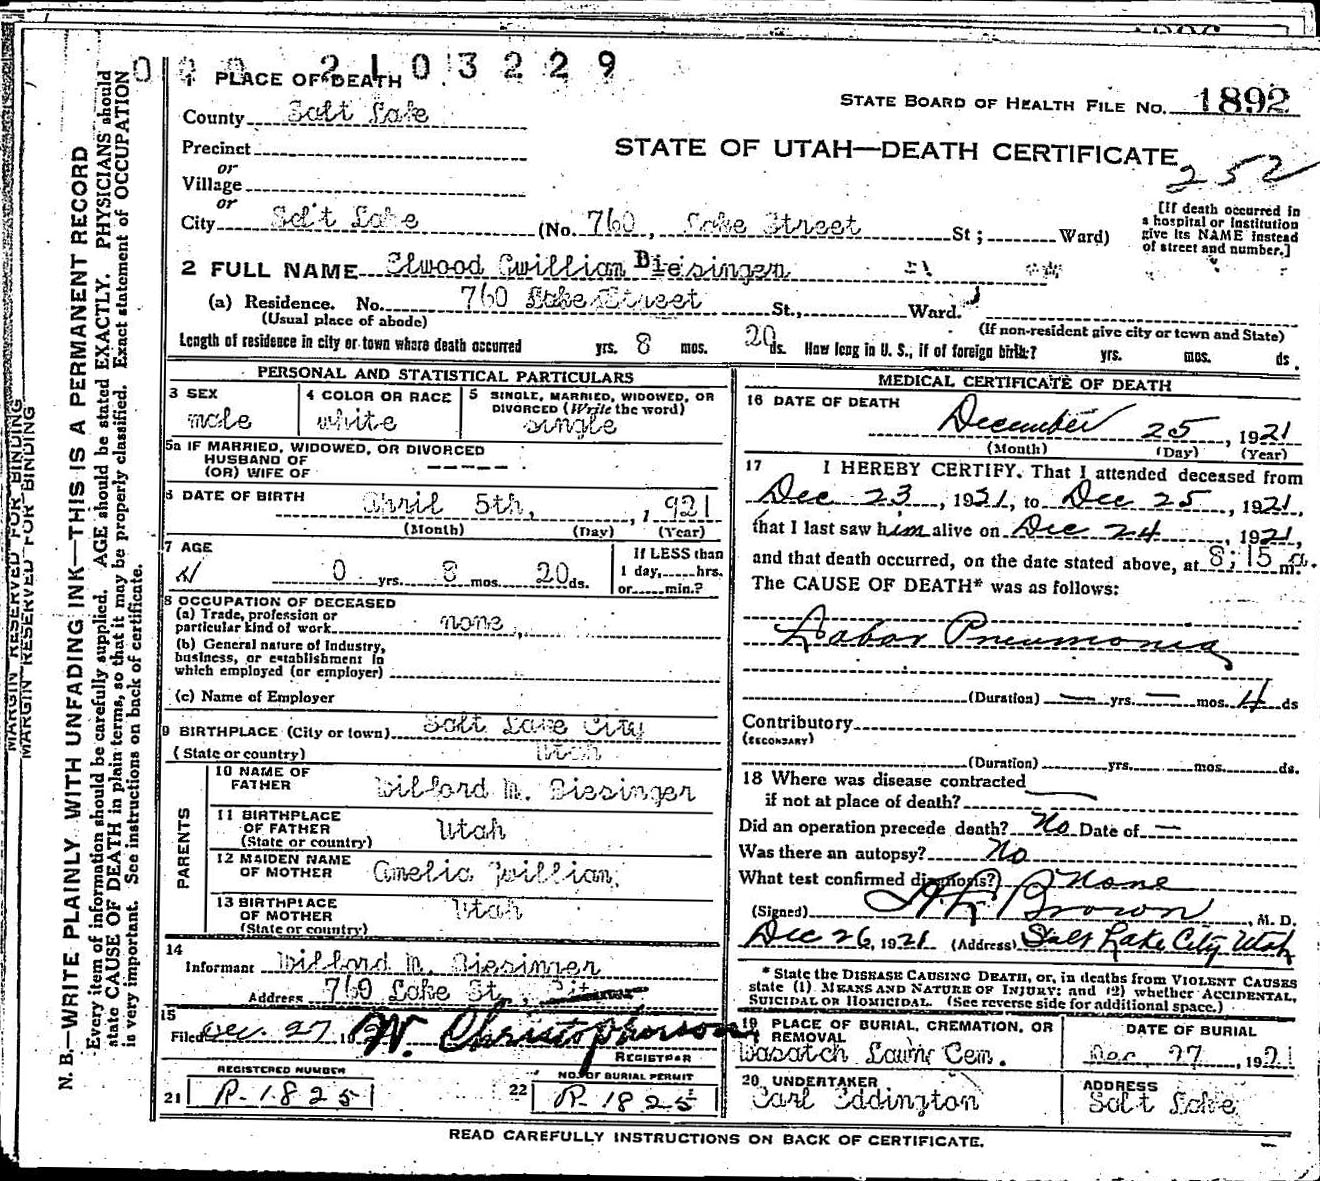 2103229
1 PLACE OF DEATH
STATE BOARD OF HEALTH FILE NO. 1892
County Salt Lake
Precinct
STATE OF UTAH—DEATH CERTIFICATE
or
252
Village
or
City Salt Lake (No. 760, Lake Street St; Ward)
[If death occurred in
a hospital or institution
give its NAME instead
of street and number.]
2 FULL NAME Elwood Gwillian Biesinger
(a) Residence. No. 760 Lake Street St., Ward.
(Usual place of abode) (If non-resident give city or town and State)
Length of residence in city or town where death occurred yrs. 8 mos. 20 ds. How long in U. S., if of foreign birth? yrs. mos. ds.
PERSONAL AND STATISTICAL PARTICULARS
3 SEX male
4 COLOR OR RACE white
5 SINGLE, MARRIED, WIDOWED, OR
DIVORCED (Write the word)
single
5a IF MARRIED, WIDOWED, OR DIVORCED
HUSBAND OF
(OR) WIFE OF
6 DATE OF BIRTH April 5th, , 1921
(Month) (Day) (Year)
7 AGE
0 yrs. 8 mos. 20 ds.
If LESS than
1 day, hrs.
or min.?
8 OCCUPATION OF DECEASED
(a) Trade, profession or
particular kind of work none
(b) General nature of Industry,
business, or establishment in
which employed (or employer)
(c) Name of Employer
9 BIRTHPLACE (City or town) Salt Lake City
(State or country) Utah
PARENTS
10 NAME OF
FATHER Wilford M. Biesinger
11 BIRTHPLACE
OF FATHER
(State or country) Utah
12 MAIDEN NAME
OF MOTHER Amelia Gwillian
13 BIRTHPLACE
OF MOTHER
(State or country) Utah
14
Informant Wilford M. Biesinger
Address 760 Lake St.,
15
Filed Dec. 27 192 W. Christopherson
REGISTRAR
REGISTERED NUMBER
21 R-1825
NO. OF BURIAL PERMIT
22 R-1825
MEDICAL CERTIFICATE OF DEATH
16 DATE OF DEATH
December 25, 1921
(Month) (Day) (Year)
17 I HEREBY CERTIFY. That I attended deceased from
Dec 23, 1921, to Dec 25, 1921,
that I last saw him alive on Dec 24, 1921,
and that death occurred, on the date stated above, at 8:15 a. m.
The CAUSE OF DEATH* was as follows:
Lobar Pneumonia
(Duration) — yrs. — mos. 4 ds
Contributory
(SECONDARY)
(Duration) yrs. mos. ds.
18 Where was disease contracted
if not at place of death?
Did an operation precede death? No Date of —
Was there an autopsy? No
What test confirmed diagnosis? None
(Signed) Brown, M. D.
Dec 26, 1921 (Address) Salt Lake City Utah
* State the DISEASE CAUSING DEATH, or, in deaths from VIOLENT CAUSES
state (1) MEANS AND NATURE OF INJURY; and (2) whether ACCIDENTAL,
SUICIDAL OR HOMICIDAL. (See reverse side for additional space.)
19 PLACE OF BURIAL, CREMATION, OR
REMOVAL
Wasatch Lawn Cem.
DATE OF BURIAL
Dec 27, 1921
20 UNDERTAKER
Carl Eddington
ADDRESS
Salt Lake
READ CAREFULLY INSTRUCTIONS ON BACK OF CERTIFICATE.
MARGIN RESERVED FOR BINDING
MARGIN RESERVED FOR BINDING
N. B.—WRITE PLAINLY WITH UNFADING INK—THIS IS A PERMANENT RECORD
Every item of information should be carefully supplied. AGE should be stated EXACTLY. PHYSICIANS should
state CAUSE OF DEATH in plain terms, so that it may be properly classified. Exact statement of OCCUPATION
is very important. See instructions on back of certificate.